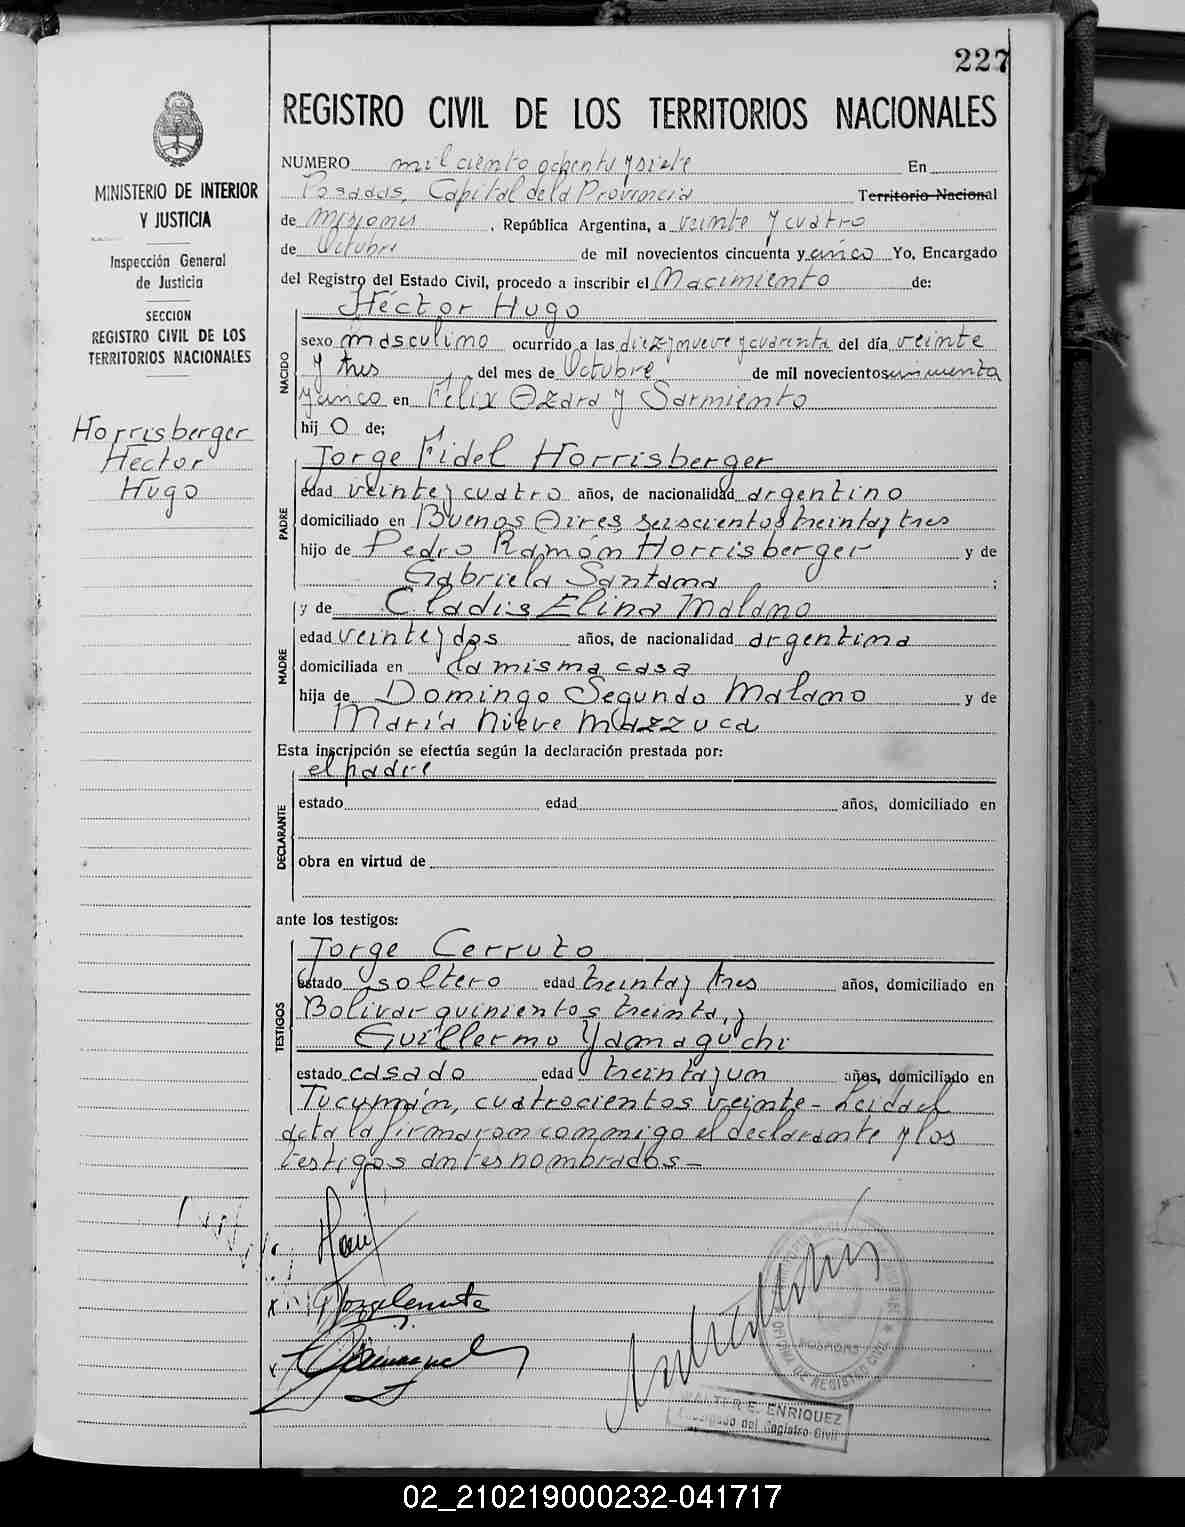 227
REGISTRO CIVIL DE LOS TERRITORIOS NACIONALES
MINISTERIO DE INTERIOR
Y JUSTICIA
Inspección General
de Justicia
SECCION
REGISTRO CIVIL DE LOS
TERRITORIOS NACIONALES
Horrisberger
Hector
Hugo
NUMERO mil ciento ochenta y siete En
Posadas, Capital de la Provincia Territorio Nacional
de Misiones, República Argentina, a veinte y cuatro
de Octubre de mil novecientos cincuenta y cinco Yo, Encargado
del Registro del Estado Civil, procedo a inscribir el Nacimiento de:
Héctor Hugo
NACIDO
sexo masculino ocurrido a las diez y nueve y cuarenta del día veinte
y tres del mes de Octubre de mil novecientos cincuenta
y cinco en Félix Azara y Sarmiento
hij o de;
Jorge Fidel Horrisberger
PADRE
edad veinte y cuatro años, de nacionalidad argentino
domiciliado en Buenos Aires seiscientos treinta y tres
hijo de Pedro Ramón Horrisberger y de
Gabriela Santana ;
y de Gladis Elina Malano
MADRE
edad veinte y dos años, de nacionalidad argentina
domiciliada en la misma casa
hija de Domingo Segundo Malano y de
María Nieve Mazzuca
Esta inscripción se efectúa según la declaración prestada por:
el padre
DECLARANTE
estado edad años, domiciliado en
obra en virtud de
ante los testigos:
Jorge Cerruto
TESTIGOS
estado soltero edad treinta y tres años, domiciliado en
Bolivar quinientos treinta, y
Guillermo Yamaguchi
estado casado edad treinta y un años, domiciliado en
Tucumán, cuatrocientos veinte - Leida el
acta la firmaron conmigo el declarante y los
testigos antes nombrados -
POSADAS
OFICINA DE REGISTRO CIVIL
WALTER E. ENRIQUEZ
Encargado del Registro Civil
02_210219000232-041717